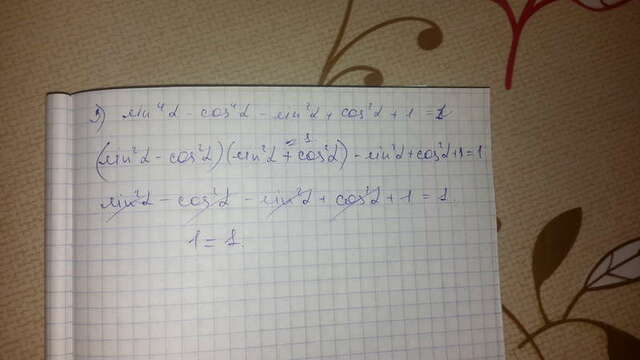 3) sin⁴α - cos⁴α - sin²α + cos²α + 1 = 1
= 1
(sin²α - cos²α)(sin²α + cos²α) - sin²α + cos²α + 1 = 1
sin²α - cos²α - sin²α + cos²α + 1 = 1
1 = 1.